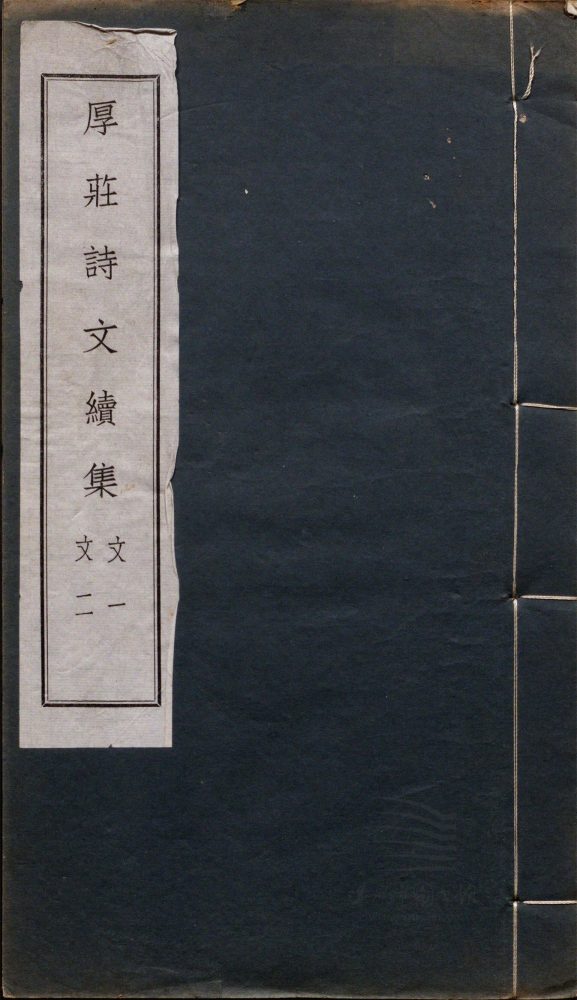 厚莊詩文續集
文一
文二